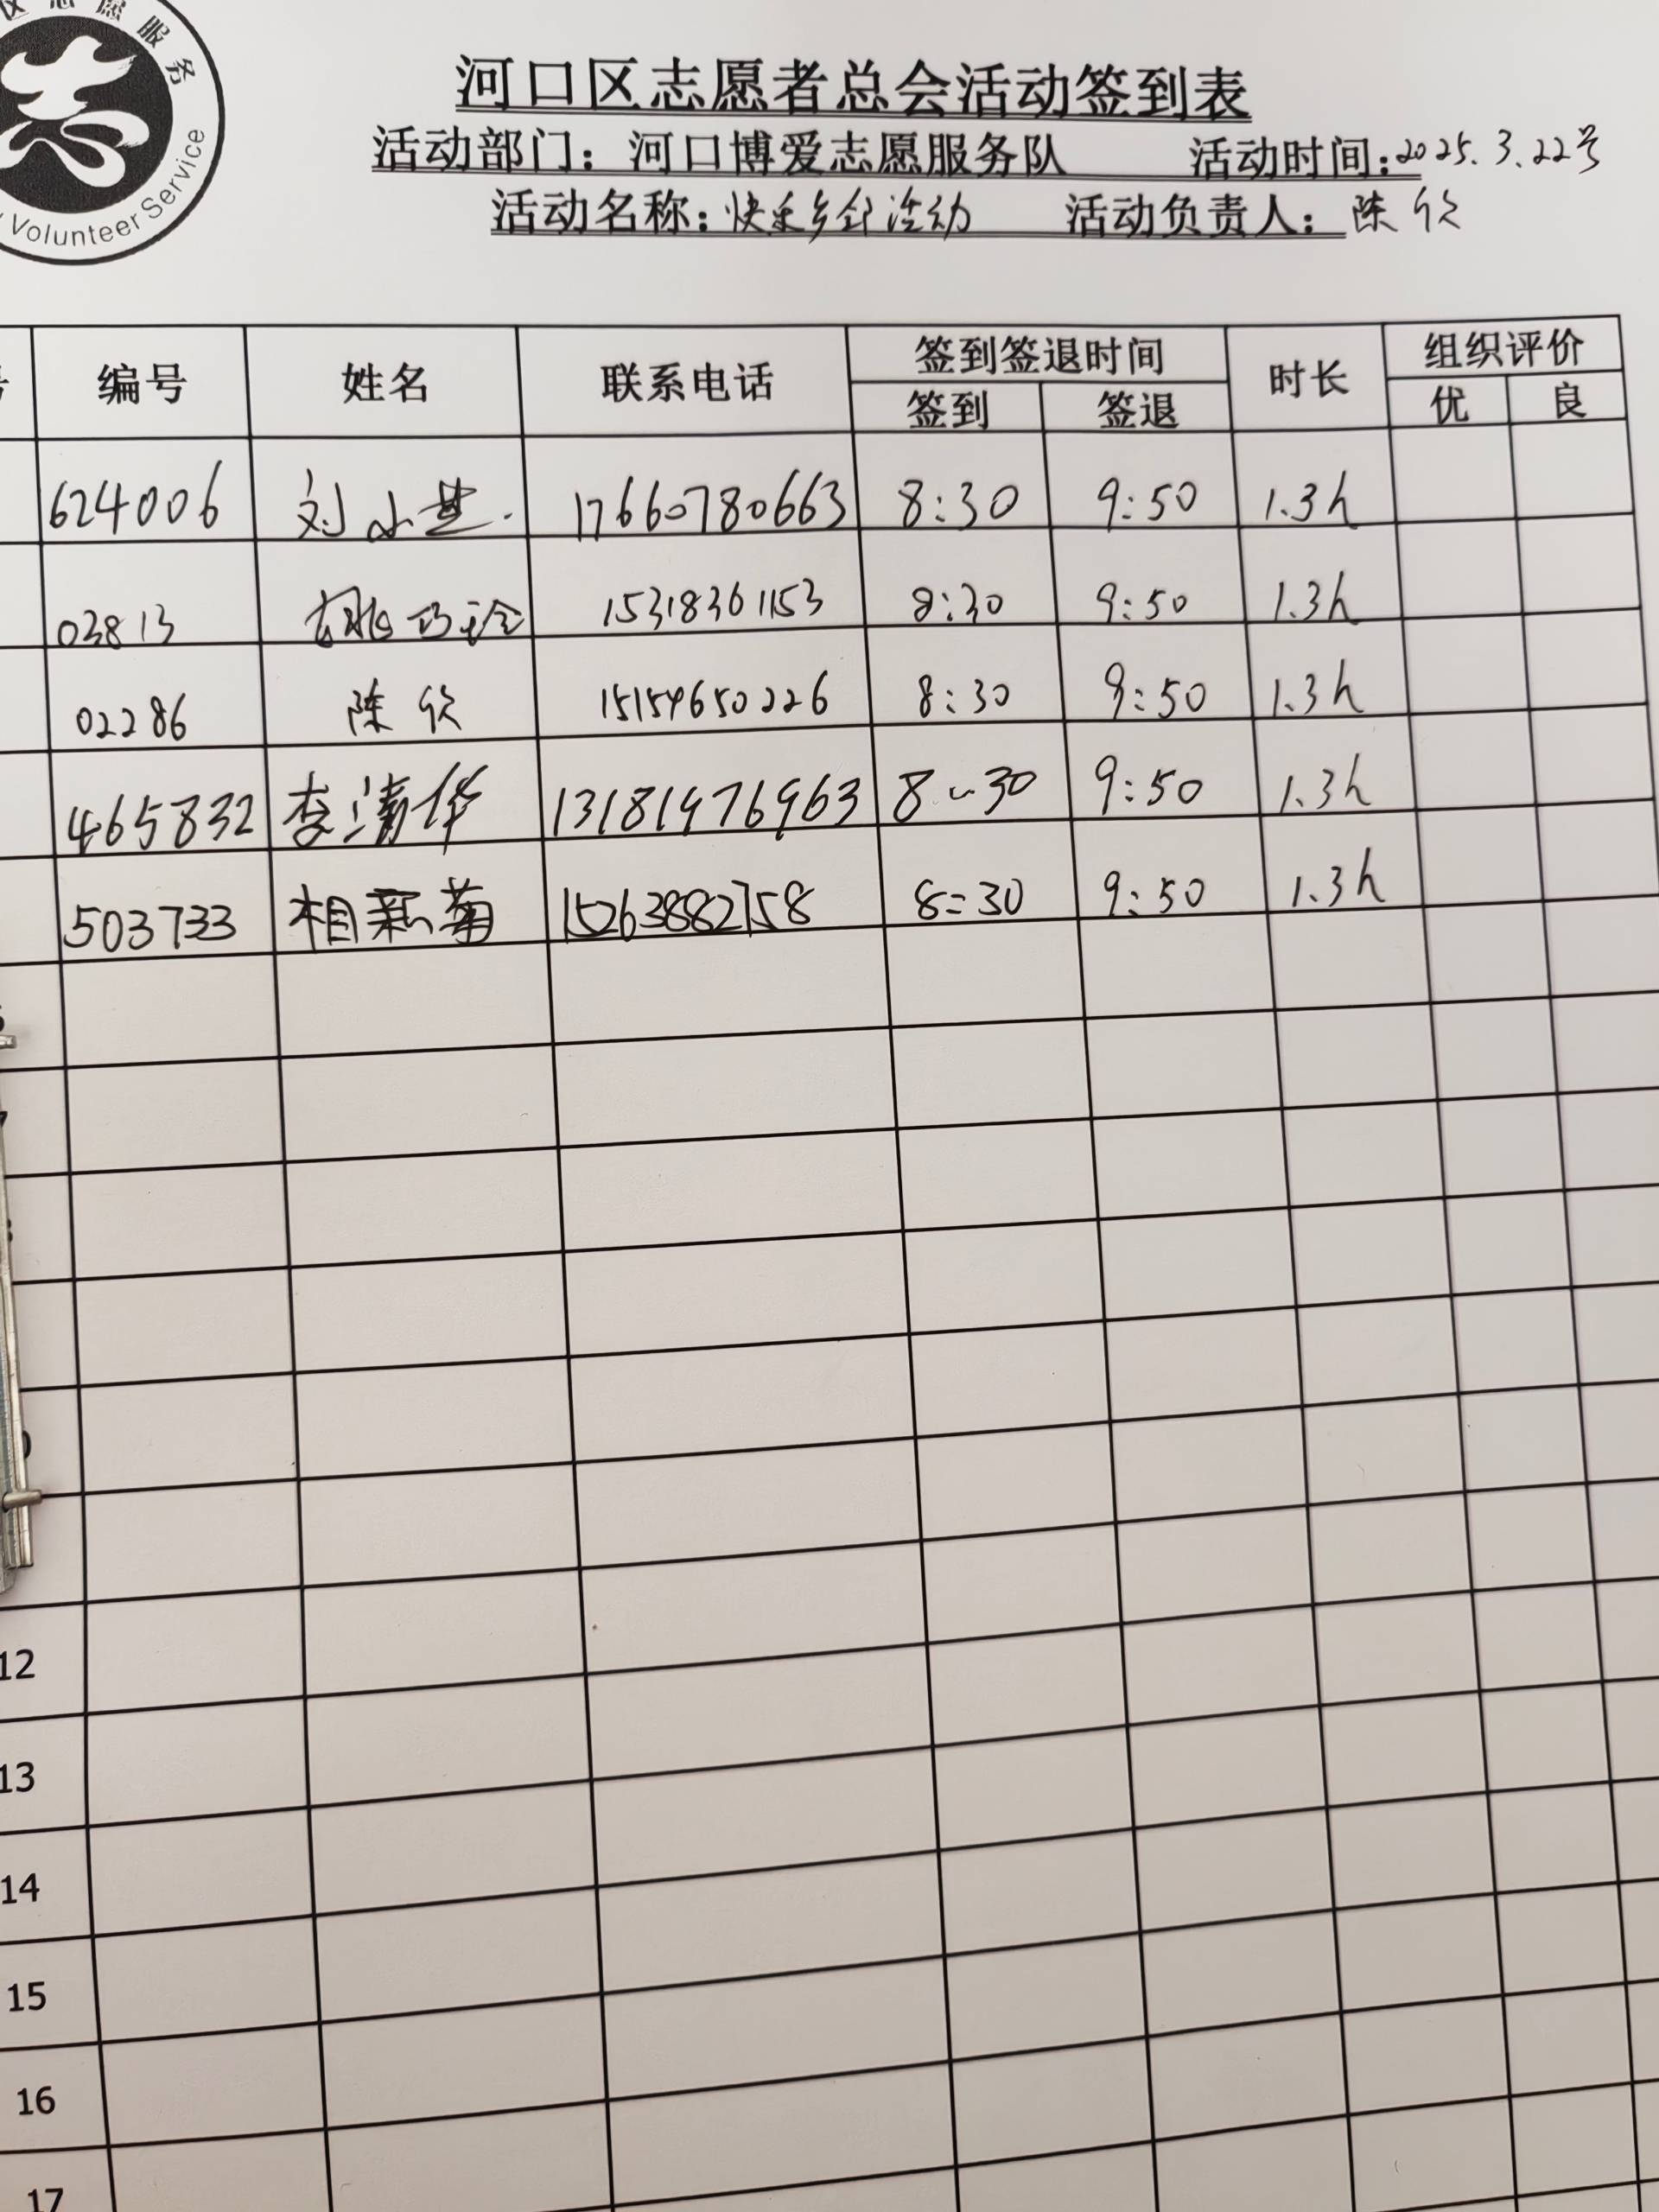 区志愿服务
Volunteer Service
河口区志愿者总会活动签到表
活动部门：河口博爱志愿服务队 活动时间：2025.3.22号
活动名称：快乐乡邻活动 活动负责人：陈欣
号 编号 姓名 联系电话 签到签退时间 时长 组织评价
签到 签退 优 良
624006 刘小芝 17660780663 8:30 9:50 1.3h
03813 15318361153 8:30 9:50 1.3h
02286 陈欣 15154650226 8:30 9:50 1.3h
465832 李清华 13181976963 8~30 9:50 1.3h
503733 相新菊 15263882758 8=30 9:50 1.3h
12
13
14
15
16
17